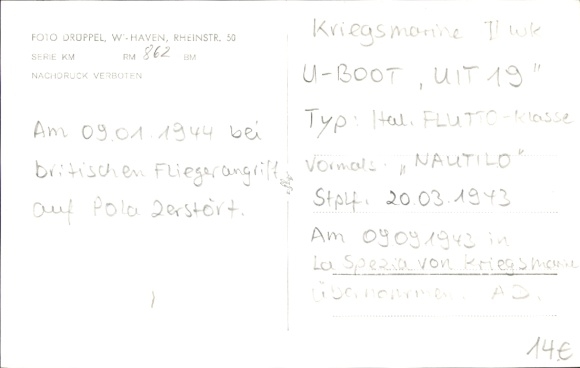 FOTO DRÜPPEL, W'-HAVEN, RHEINSTR. 50
SERIE KM BM 862 BM
NACHDRUCK VERBOTEN
Am 09.01.1944 bei
britischen Fliegerangriff
auf Pola zerstört.
Kriegsmarine II wk
U-BOOT „UIT 19"
Typ: Ital. FLUTTO-Klasse
vormals „NAUTILO"
Stplf. 20.03.1943
Am 09.09.1943 in
La Spezia von Kriegsmarine
übernommen. AD.
14€